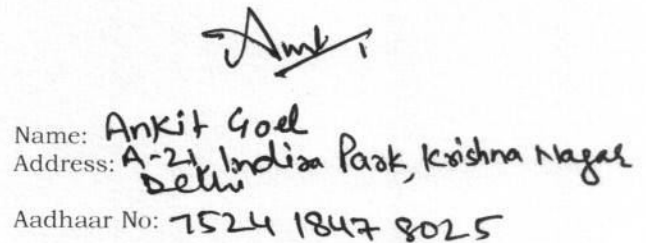 Ankit
Name: Ankit Goel
Address: A-21, Indira Park, Krishna Nagar
Delhi
Aadhaar No: 7524 1847 8025